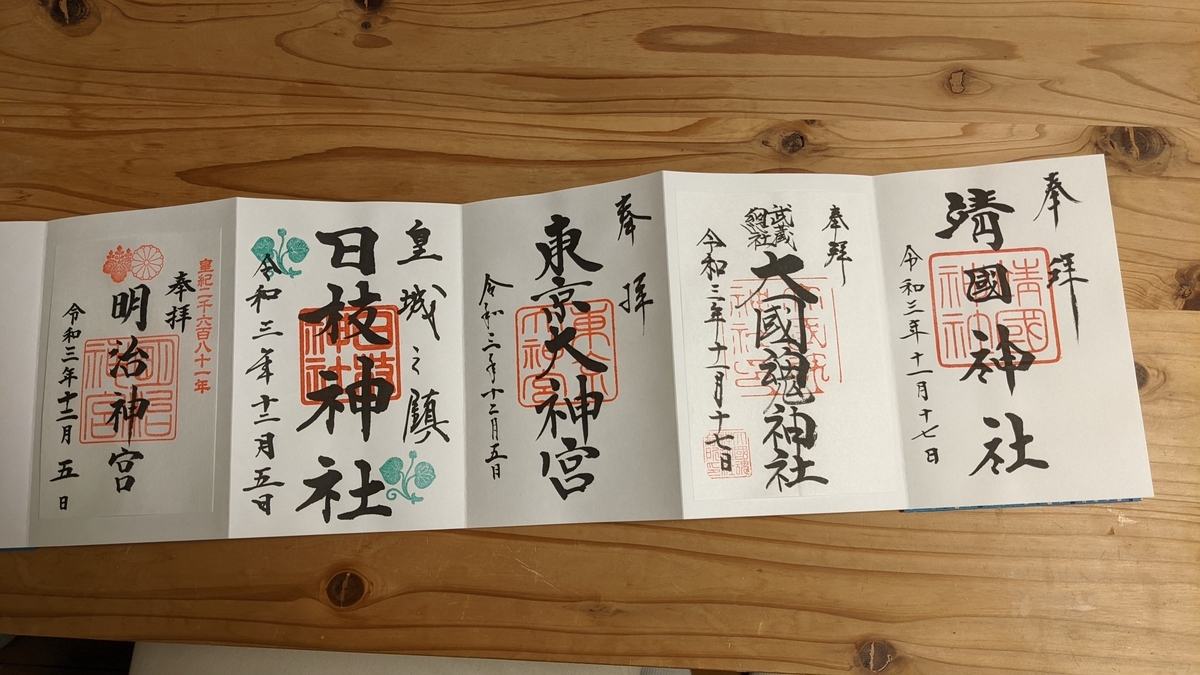 奉拝
靖國神社
令和三年十一月十七日
奉拝
武蔵
総社
大國魂神社
令和三年十一月十七日
奉拝
東京大神宮
令和三年十二月五日
皇城之鎮
日枝神社
令和三年十二月五日
皇紀二千六百八十一年
奉拝
明治神宮
令和三年十二月五日